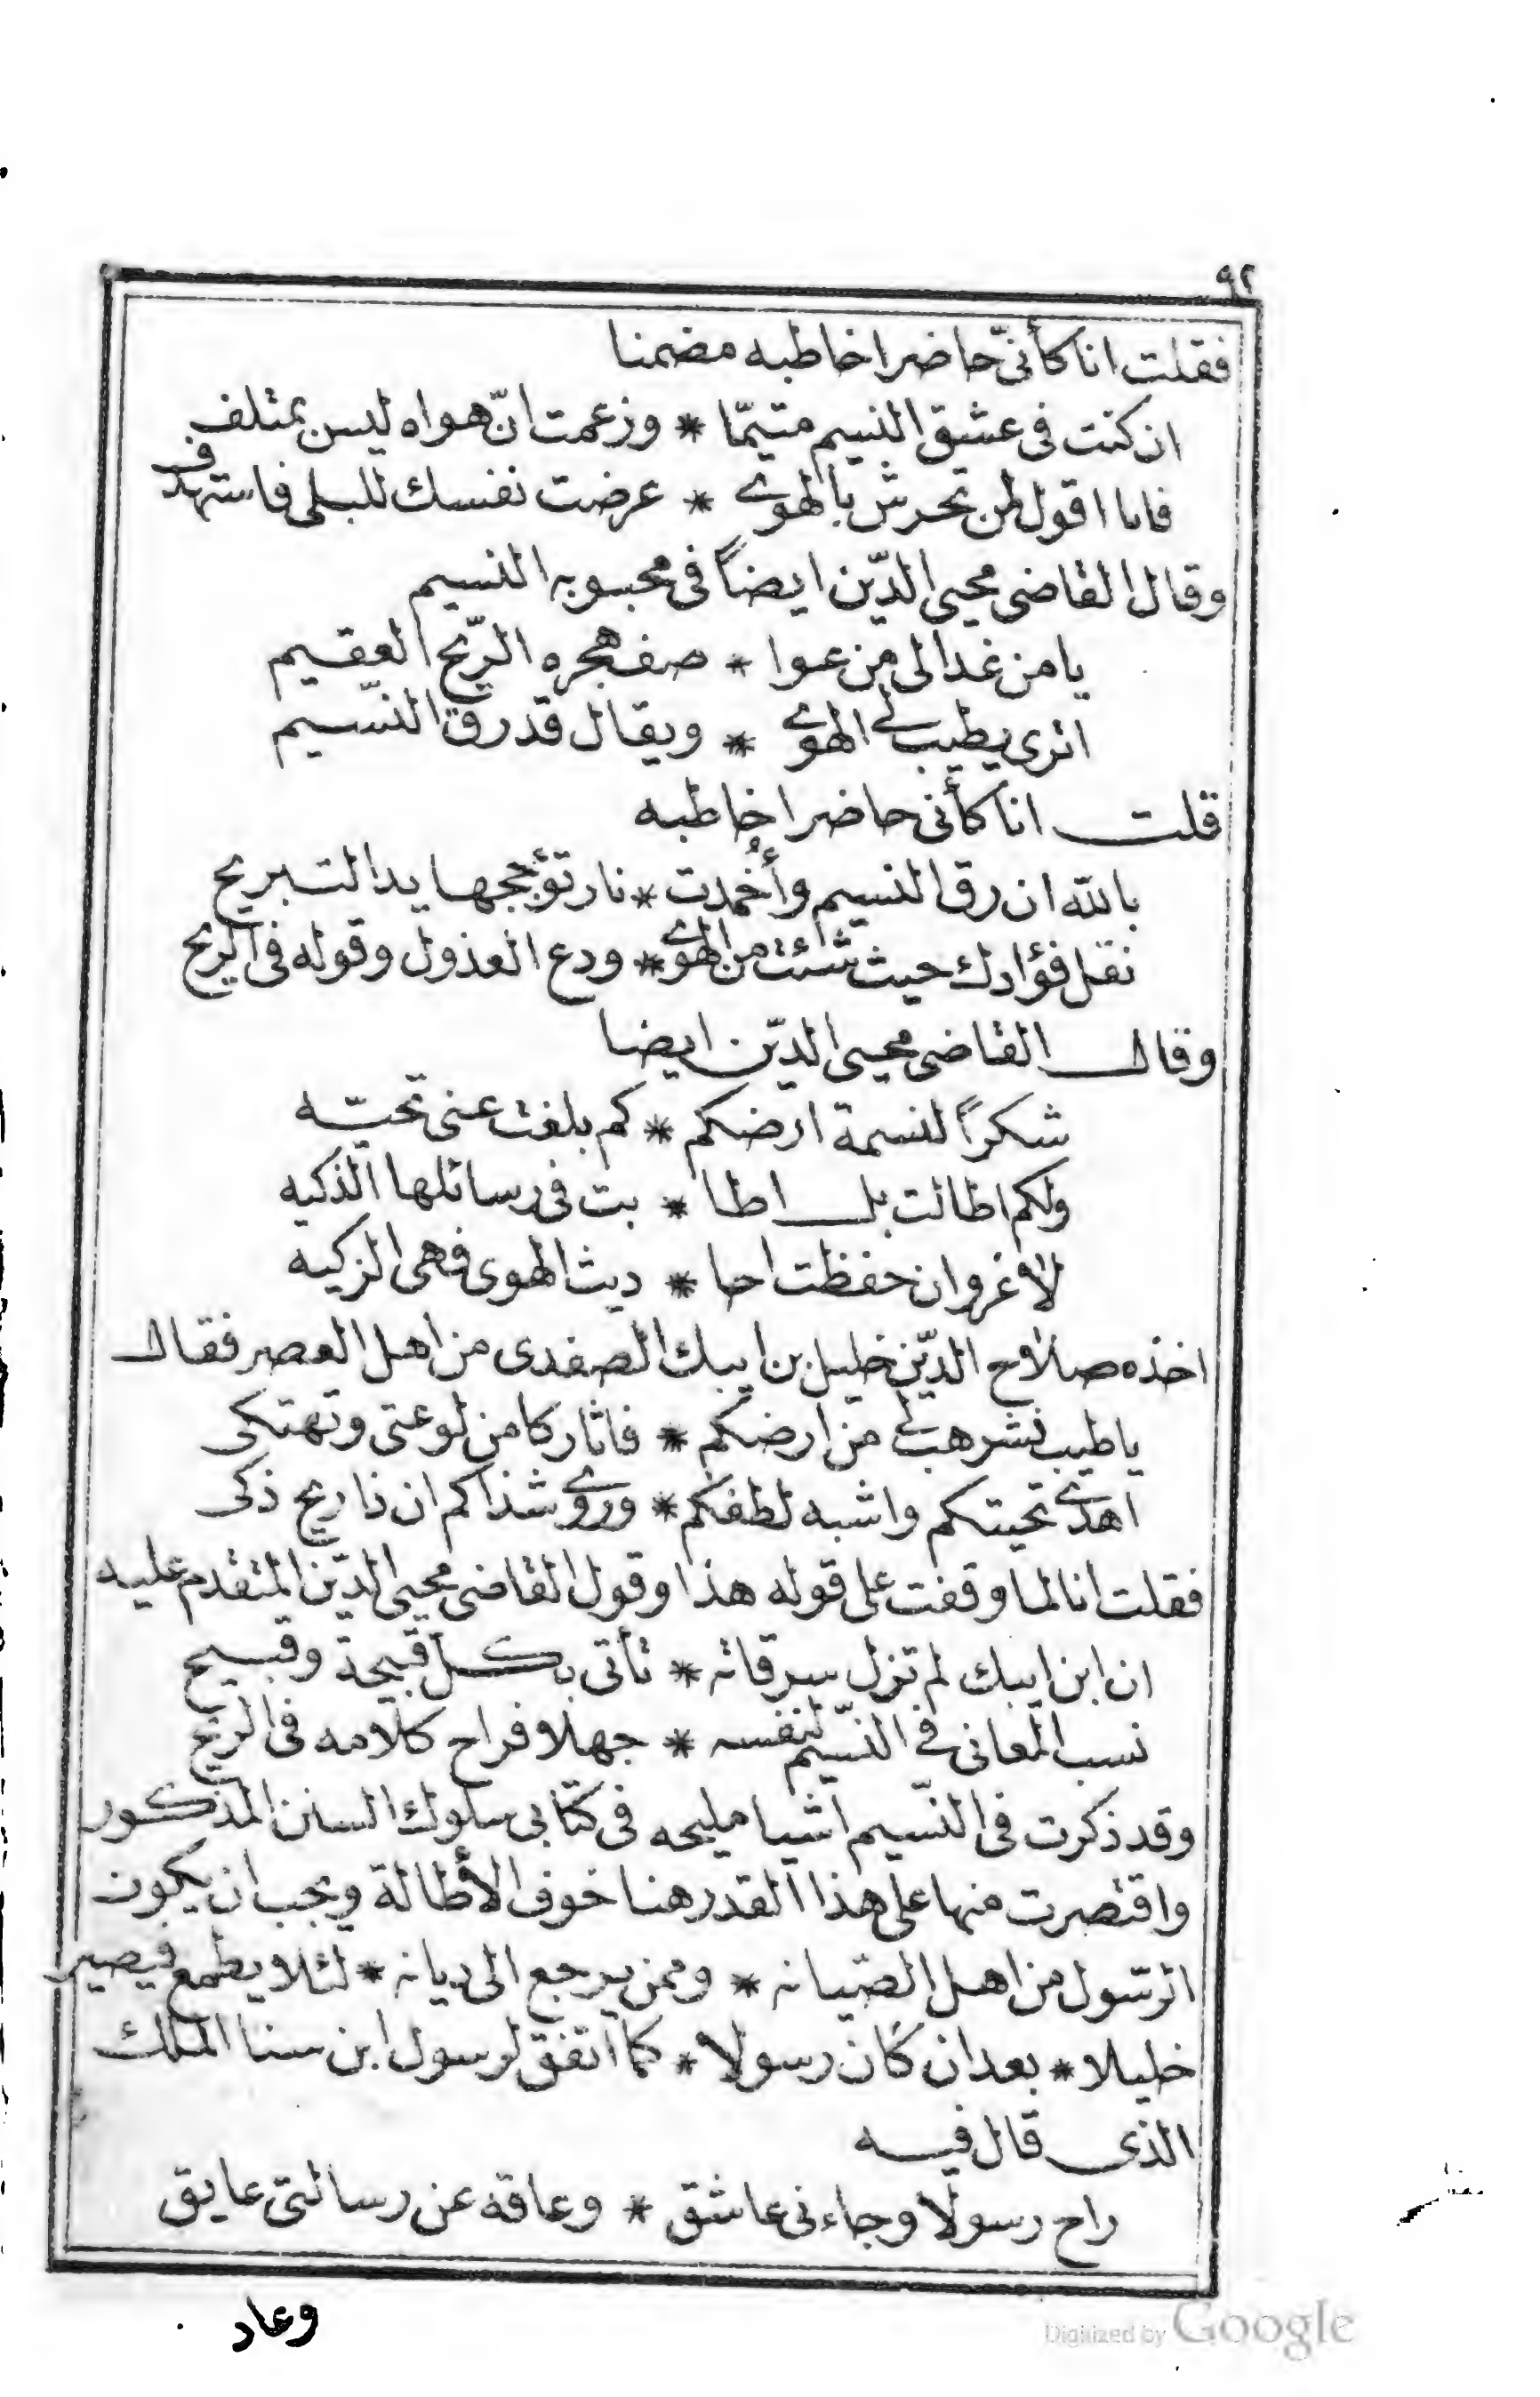 ٩٢
فقلت انا كأنّى حاضرا خاطبه مضمنا
ان كنت فى عشق النسيم متيمّا * وزعمت انّ هواه ليس بمتلف
فانا اقول لمن تحرش بالهوى * عرضت نفسك للبلى فاستهدف
وقال القاضى محيى الدّين ايضاً فى محبوبه النسيم
يا من غدا لى من عوا * صف هجره الرّيح العقيم
اترى يطيب لى الهوى * ويقال قد رق النّسيم
قلت انا كأنى حاضرا خاطبه
بالله ان رق النسيم وأُخمدت * نار تؤججها يد التبريح
نقل فؤادك حيث شئت من الهوى * ودع العذول وقوله فى الريح
وقال القاضى محيى الدّين ايضا
شكراً لنسمة ارضكم * كم بلغت عنى تحيّه
ولكم اطالت بل اطا * بت فى رسائلها الذكيه
لا غروان حفظت احا * ديث الهوى فهى الزكيه
اخذه صلاح الدّين خليل بن ايبك الصفدى من اهل العصر فقال
يا طيب نشر هب لى من ارضكم * فاثار كامن لوعتى وتهتكى
اهدى تحيتكم واشبه لطفكم * وروى شذاكم ان ذا ريح ذكى
فقلت انا لما وقفت على قوله هذا وقول القاضى محيى الدّين المتقدم عليه
ان ابن ايبك لم تزل سرقاته * تأتى بكل قبيحة وقبيح
نسب المعانى فى النّسيم لنفسه * جهلا فراح كلامه فى الريح
وقد ذكرت فى النّسيم اشيا مليحه فى كتابى سلوك السنن المذكور
واقتصرت منها على هذا القدر هنا خوف الأطالة ويجب ان يكون
الرّسول من اهل الصّيانه * وممن يرجع الى ديانه * لئلا يطمع فيصير
خليلا * بعد ان كان رسولا * كما اتفق لرسول ابن سنا الملك
الذى قال فيه
راح رسولا وجاءنى عاشق * وعاقه عن رسالتى عايق
وعاد
Digitized by Google